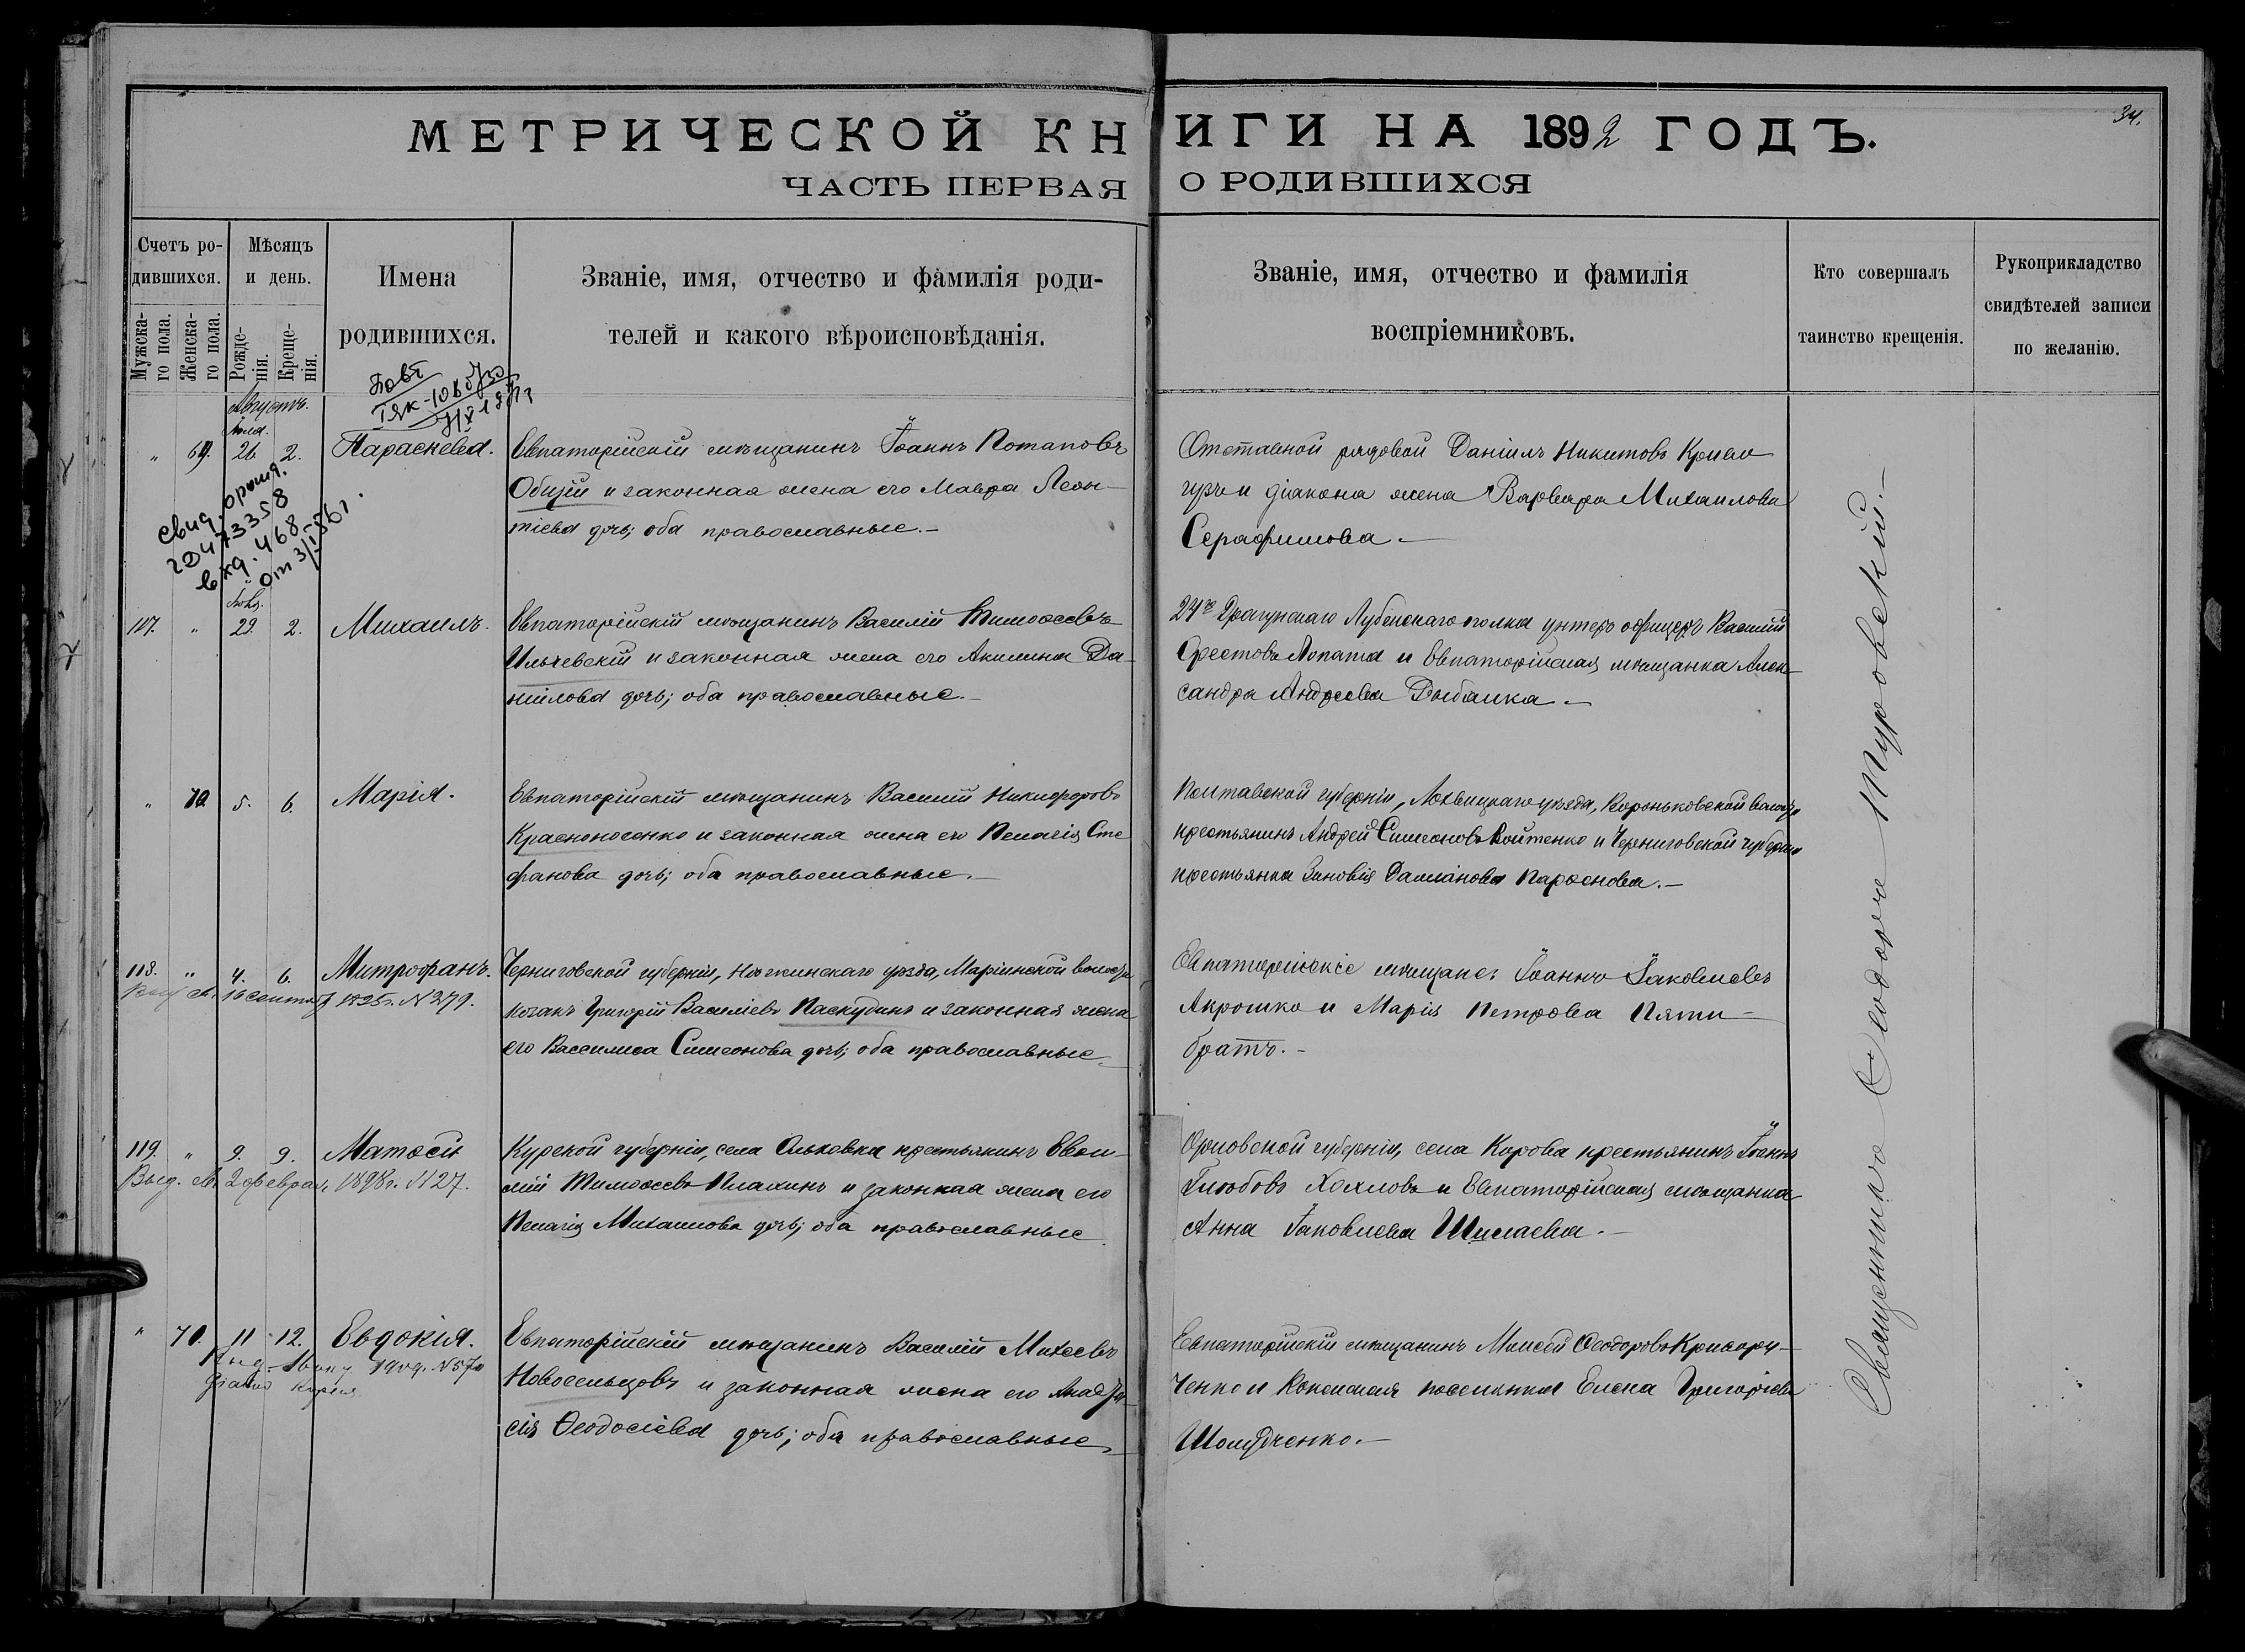 34.
МЕТРИЧЕСКОЙ КНИГИ НА 1892 ГОДЪ.
ЧАСТЬ ПЕРВАЯ О РОДИВШИХСЯ
Счетъ ро-
дившихся.
Мужска-
го пола.
Женска-
го пола.
Мѣсяцъ
и день.
Рожде-
нія.
Креще-
нія.
Имена
родившихся.
Званіе, имя, отчество и фамилія роди-
телей и какого вѣроисповѣданія.
Званіе, имя, отчество и фамилія
воспріемниковъ.
Кто совершалъ
таинство крещенія.
Рукоприкладство
свидѣтелей записи
по желанію.
Августъ.
Іюля.
" 69. 26 2. Параскева.
Евпаторійскій мѣщанинъ Іоаннъ Потаповъ
Общій и законная жена его Мавра Леон-
тіева дочь; оба православные.-
Отставной рядовой Даніилъ Никитовъ
и діакона жена Варвара Михаилова
Серафимова.-
свид.
вхд. 468
от 3/I 556 г.
Іюля.
117. " 29. 2. Михаилъ.
Евпаторійскій мѣщанинъ Василій Тимоѳеевъ
Ильчевскій и законная жена его Акилина Да-
ніилова дочь; оба православные.-
24го Драгунскаго Лубенскаго полка унтеръ офицеръ Василій
Орестовъ Лопата и Евпаторійская мѣщанка Алек-
сандра Андреева Рыбалка.-
" 70 5. 6. Марія.
Евпаторійскій мѣщанинъ Василій Никифоровъ
Красноносенко и законная жена его Пелагія Сте
фанова дочь; оба православные.-
Полтавской губерніи, Лохвицкаго уѣзда, Вороньковской волости
крестьянинъ Андрей Симеоновъ Войтенко и Черниговской губерніи
крестьянка Зиновія Даміанова.-
118. " 4. 6. Митрофанъ.
Черниговской губерніи, Нѣжинскаго уѣзда, Маріинской волости
козакъ Григорій Василіевъ Паскудинъ и законная жена
его Вассилиса Симеонова дочь; оба православные
Евпаторійскіе мѣщане: Іоаннъ Іаковлевъ
Акрошко и Марія Петрова Пяти-
братъ.-
16 сентяб. 1895 г. N 279.
119. " 9. 9. Матѳей
Курской губерніи, села Ольховка крестьянинъ Евѳи-
мій Тимоѳеевъ Плахинъ и законная жена его
Пелагія Михаилова дочь; оба православные
Орловской губерніи, села Корова крестьянинъ Іоаннъ
Глѣбовъ Хохловъ и Евпаторійская мѣщанка
Анна Іаковлева Шилаева.-
Выд. м. 2 феврал. 1898 г. N 27.
" 71. 11 12. Евдокія.
Евпаторійскій мѣщанинъ Василій Михеевъ
Новосельцовъ и законная жена его Анаста-
сія Ѳеодосіева дочь; оба православные.
Евпаторійскій мѣщанинъ Моисей Ѳеодоровъ Кривору-
ченко и поселянка Елена Григоріева
Шолудченко.-
1909. N 570
Священникъ Ѳеодоръ Туровскій.-